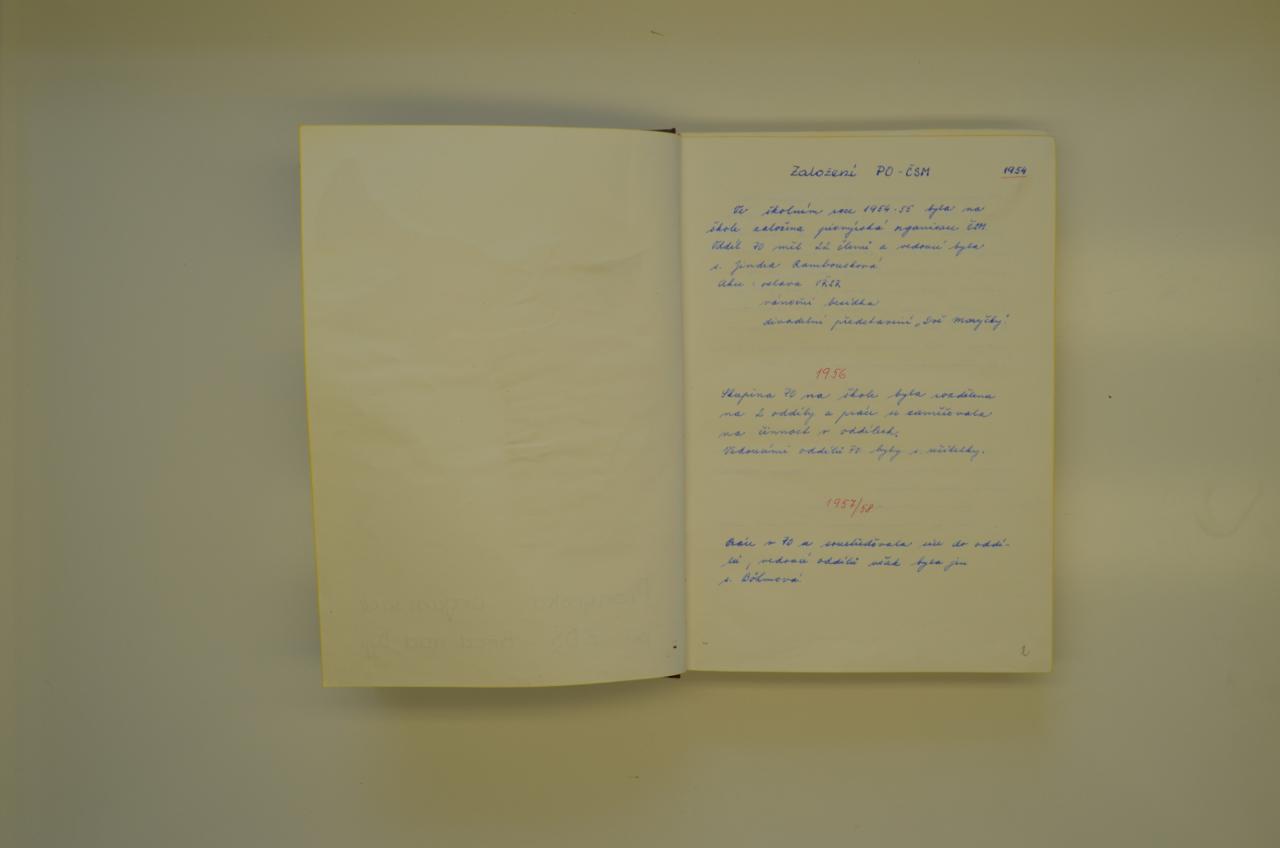 Založení PO-ČSM 1954
Ve školním roce 1954-55 byla na
škole založena pionýrská organisace ČSM.
Oddíl PO měl 22 členů a vedoucí byla
s. Jindra Rambousková
Akce: oslava VŘSR
vánoční besídka
divadelní představení „Dvě Maryčky".
1956
Skupina PO na škole byla rozdělena
na 2 oddíly a práce se zaměřovala
na činnost v oddílech.
Vedoucími oddílů PO byly s. učitelky.
1957/58
Práce v PO a soustřeďovala více do oddí-
lů, vedoucí oddílů však byla jen
s. Böhmová
2